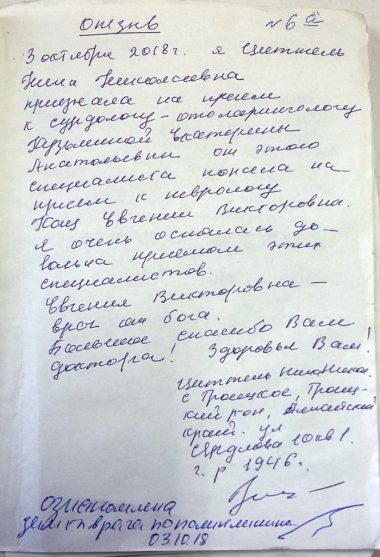 Отзыв №6а
3 октября 2018г. я Циттель
Нина Николаевна
приехала на прием
к сурдологу-отоларингологу
Кузьминой Екатерины
Анатольевны от этого
специалиста попала на
прием к неврологу
Кац Евгении Викторовна.
Я очень осталась до-
вольна приемом этих
специалистов.
Евгения Викторовна –
врач от бога.
Большое спасибо Вам
доктора! Здоровья Вам!
Циттель Нина Ник.
с Троицкое, Троиц-
кий р-он, Алтайский
край. ул
Свердлова 10 кв 1.
г. р 1946г.
ознакомлена
зам гл врача по поликлинике
03.10.18